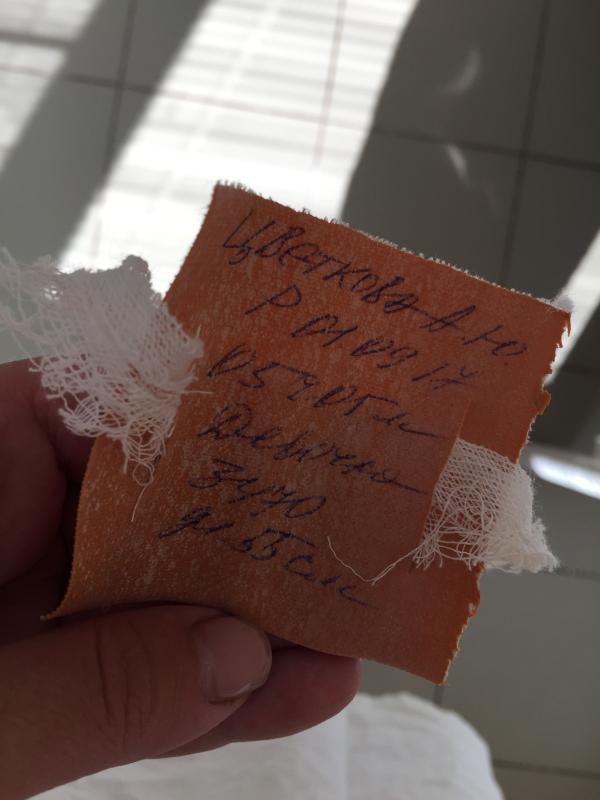 Цветкова А Ю
Р 01 09 17
05ч05м
Девочка
3470
дл 55см